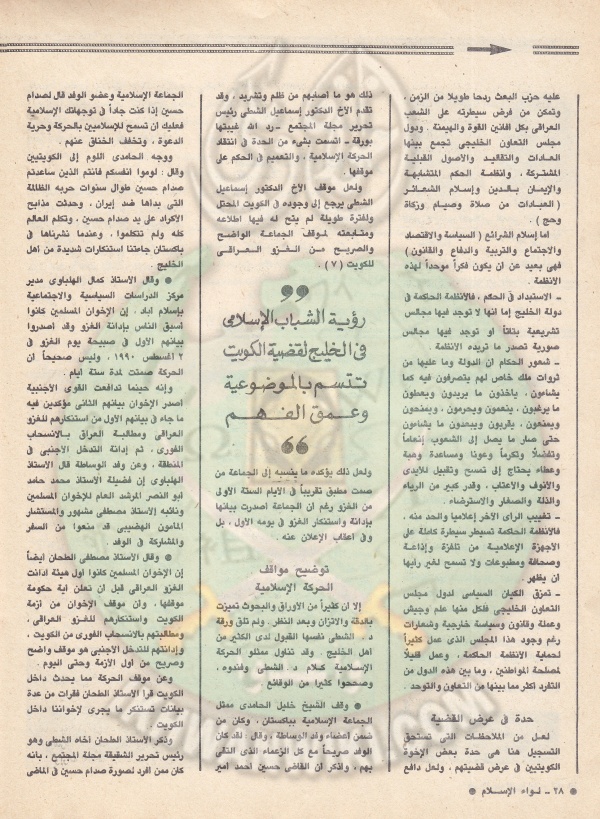 عليه حزب البعث ردحا طويلا من الزمن ،
وتمكن من فرض سيطرته على الشعب
العراقى بكل افانين القوة والهيمنة . ودول
مجلس التعاون الخليجى تجمع بينها
العادات والتقاليد والأصول القبلية
المشتركة ، وانظمة الحكم المتشابهة
والإيمان بالدين وإسلام الشعائر
( العبادات من صلاة وصيام وزكاة
وحج ) .
اما إسلام الشرائع ( السياسة والاقتصاد
والاجتماع والتربية والدفاع والقانون )
فهى بعيد عن ان يكون فكراً موحداً لهذه
الانظمة .
ـ الاستبداد فى الحكم ، فالأنظمة الحاكمة فى
دولة الخليج إما انها لا توجد فيها مجالس
تشريعية بتاتاً أو توجد فيها مجالس
صورية تصدر ما تريده الأنظمة .
ـ شعور الحكام ان الدولة وما عليها من
ثروات ملك خاص لهم يتصرفون فيه كما
يشاءون ، ياخذون ما يريدون ويعطون
ما يرغبون ، ينعمون ويحرمون ، ويمنحون
ويمنعون ، يقربون ويبعدون ما يشاءون
حتى صار ما يصل إلى الشعوب إنعاماً
وتفضلاً وتكرماً وعونا ومساعدة وهبة
وعطاء يحتاج إلى تمسح وتقبيل للأيدى
والأنوف والأعتاب ، وقدر كبير من الرياء
والذلة والصغار والاسترضاء .
ـ تغييب الراى الآخر إعلاميا والحد منه ،
فالأنظمة الحاكمة تسيطر سيطرة كاملة على
الأجهزة الإعلامية من تلفزة وإذاعة
وصحافة ومطبوعات ولا تسمح لغير رأيها
ان يظهر .
ـ تمزق الكيان السياسى لدول مجلس
التعاون الخليجى فلكل منها علم وجيش
وعملة وقانون وسياسة خارجية وشعارات
رغم وجود هذا المجلس الذى عمل كثيراً
لحماية الأنظمة الحاكمة ، وعمل قليلاً
لمصلحة المواطنين ، وما بين هذه الدول من
التفرد اكثر مما بينها من التعاون والتوحد .
حدة فى عرض القضية
لعل من الملاحظات التى تستحق
التسجيل هنا هى حدة بعض الإخوة
الكويتيين فى عرض قضيتهم ، ولعل دافع
ذلك هو ما أصابهم من ظلم وتشريد ، وقد
تقدم الأخ الدكتور إسماعيل الشطى رئيس
تحرير مجلة المجتمع ـ رد الله غيبتها
بورقة ـ اتسمت بشىء من الحدة فى انتقاد
الحركة الإسلامية ، والتعميم فى الحكم على
موقفها .
ولعل موقف الأخ الدكتور إسماعيل
الشطى يرجع إلى وجوده فى الكويت المحتل
ولفترة طويلة لم يتح له فيها اطلاعه
ومتابعته لموقف الجماعة الواضح
والصريح من الغزو العراقى
للكويت ( ٧ ) .
رؤية الشباب الإسلامى
فى الخليج لقضية الكويت
تتسم بالموضوعية
وعمق الفهم
ولعل ذلك يؤكده ما ينسبه إلى الجماعة من
صمت مطبق تقريباً فى الأيام الستة الأولى
من الغزو رغم ان الجماعة اصدرت بيانها
بإدانة واستنكار الغزو فى يومه الأول ، بل
وفى اعقاب الإعلان عنه .
توضيح مواقف
الحركة الإسلامية
إلا ان كثيراً من الأوراق والبحوث تميزت
بالدقة والاتزان وبعد النظر . ولم تلق ورقة
د . الشطى نفسها القبول لدى الكثير من
اهل الخليج . وقد تناول ممثلو الحركة
الإسلامية كلام د . الشطى وفندوه ،
وصححوا كثيرا من الوقائع .
● وقف الشيخ خليل الحامدى ممثل
الجماعة الإسلامية بباكستان ، وكان من
ضمن أعضاء وفد الوساطة ، وقال : لقد كان
الوفد صريحاً مع كل الزعماء الذى التقى
بهم ، واذكر ان القاضى حسين احمد امير
الجماعة الإسلامية وعضو الوفد قال لصدام
حسين إذا كنت جاداً فى توجهاتك الإسلامية
فعليك ان تسمح للإسلاميين بالحركة وحرية
الدعوة ، وتخفف الخناق عنهم .
ووجه الحامدى اللوم إلى الكويتيين
وقال : لوموا انفسكم فانتم الذين ساعدتم
صدام حسين طوال سنوات حربه الظالمة
التى بدأها ضد إيران ، وحدثت مذابح
الأكراد على يد صدام حسين ، وتكلم العالم
كله ولم تتكلموا ، وعندما نشرناها فى
باكستان جاءتنا استنكارات شديدة من أهل
الخليج .
● وقال الأستاذ كمال الهلباوى مدير
مركز الدراسات السياسية والاجتماعية
بإسلام آباد ، إن الإخوان المسلمين كانوا
أسبق الناس بإدانة الغزو وقد اصدروا
بيانهم الأول فى صبيحة يوم الغزو فى
٢ اغسطس ١٩٩٠ ، وليس صحيحاً ان
الحركة صمتت لمدة ستة أيام .
وإنه حينما تدافعت القوى الأجنبية
اصدر الإخوان بيانهم الثانى مؤكدين فيه
ما جاء فى بيانهم الأول من استنكارهم للغزو
العراقى ومطالبة العراق بالانسحاب
الفورى ، ثم إدانة التدخل الأجنبى فى
المنطقة ، وعن وفد الوساطة قال الأستاذ
الهلباوى إن فضيلة الأستاذ محمد حامد
أبو النصر المرشد العام للإخوان المسلمين
ونائبه الأستاذ مصطفى مشهور والمستشار
المامون الهضيبى قد منعوا من السفر
والمشاركة فى الوفد
● وقال الأستاذ مصطفى الطحان أيضاً
إن الإخوان المسلمين كانوا أول هيئة أدانت
الغزو العراقى قبل ان تعلن اية حكومة
موقفها ، وان موقف الإخوان من أزمة
الكويت واستنكارهم للغزو العراقى ،
ومطالبتهم بالانسحاب الفورى من الكويت ،
وإدانتهم للتدخل الأجنبى هو موقف واضح
وصريح من أول الأزمة وحتى اليوم .
وعن موقف الحركة مما يحدث داخل
الكويت قرأ الأستاذ الطحان فقرات من عدة
بيانات تستنكر ما يجرى لإخواننا داخل
الكويت .
وذكر الأستاذ الطحان أخاه الشطى وهو
رئيس تحرير الشقيقة مجلة المجتمع ، بأنه
كان ممن أفرد لصورة صدام حسين فى الماضى
● ٢٨ ـ لواء الإسلام ●